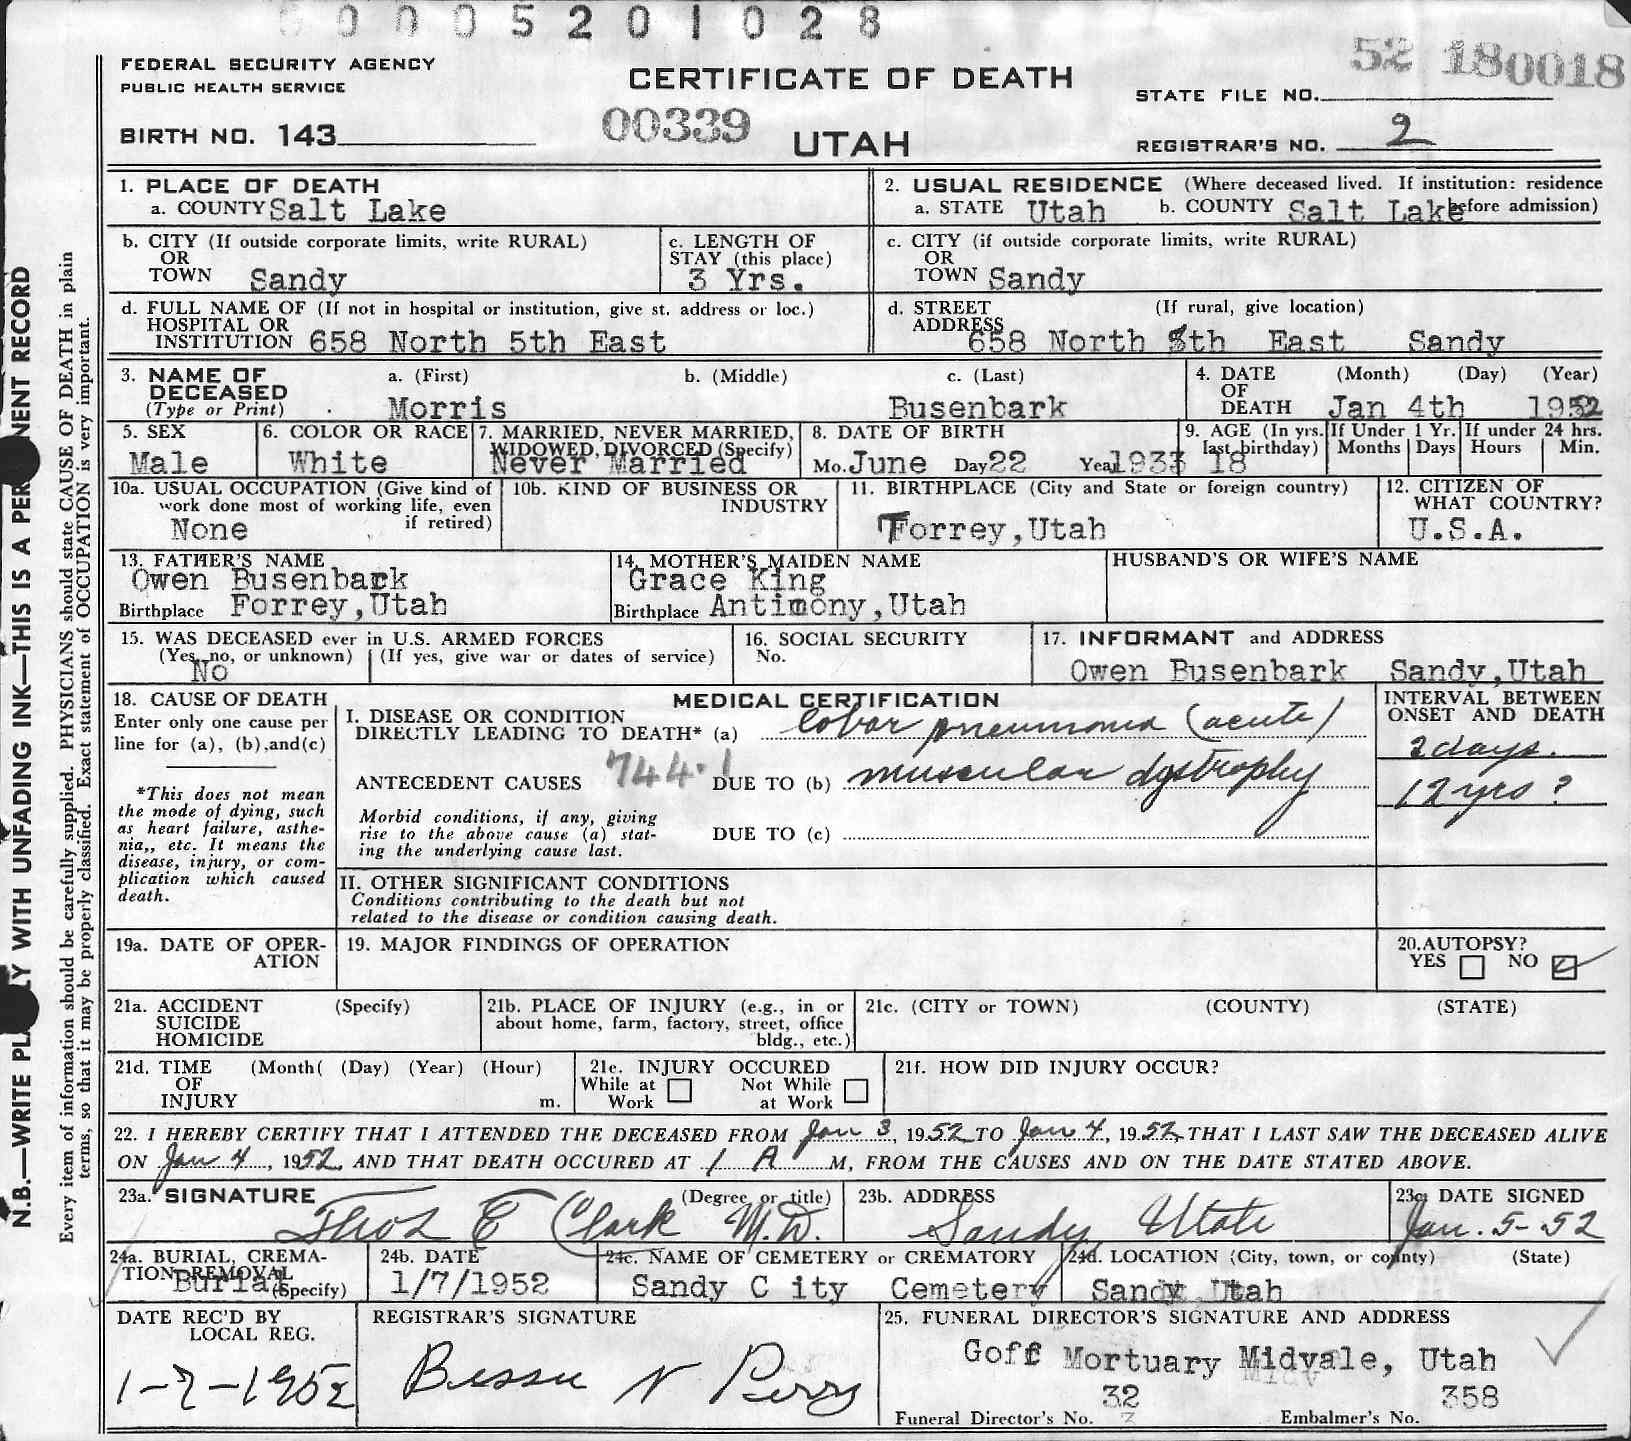 0005201028
FEDERAL SECURITY AGENCY
PUBLIC HEALTH SERVICE
CERTIFICATE OF DEATH
52 180018
STATE FILE NO.
BIRTH NO. 143
00339
UTAH
REGISTRAR'S NO. 2
N.B.—WRITE PL LY WITH UNFADING INK—THIS IS A PER NENT RECORD
Every item of information should be carefully supplied. PHYSICIANS should state CAUSE OF DEATH in plain
terms, so that it may be properly classified. Exact statement of OCCUPATION is very important.
1. PLACE OF DEATH
a. COUNTY Salt Lake
2. USUAL RESIDENCE (Where deceased lived. If institution: residence
a. STATE Utah b. COUNTY Salt Lake before admission)
b. CITY (If outside corporate limits, write RURAL)
OR
TOWN Sandy
c. LENGTH OF
STAY (this place)
3 Yrs.
c. CITY (if outside corporate limits, write RURAL)
OR
TOWN Sandy
d. FULL NAME OF (If not in hospital or institution, give st. address or loc.)
HOSPITAL OR
INSTITUTION 658 North 5th East
d. STREET (If rural, give location)
ADDRESS
658 North 5th East Sandy
3. NAME OF
DECEASED
(Type or Print)
a. (First) b. (Middle) c. (Last)
Morris Busenbark
4. DATE (Month) (Day) (Year)
OF
DEATH Jan 4th 1952
5. SEX
Male
6. COLOR OR RACE
White
7. MARRIED, NEVER MARRIED,
WIDOWED, DIVORCED (Specify)
Never Married
8. DATE OF BIRTH
Mo. June Day 22 Year 1933
9. AGE (In yrs.
last birthday)
18
If Under 1 Yr.
Months Days
If under 24 hrs.
Hours Min.
10a. USUAL OCCUPATION (Give kind of
work done most of working life, even
if retired)
None
10b. KIND OF BUSINESS OR
INDUSTRY
11. BIRTHPLACE (City and State or foreign country)
Torrey, Utah
12. CITIZEN OF
WHAT COUNTRY?
U.S.A.
13. FATHER'S NAME
Owen Busenbark
Birthplace Forrey, Utah
14. MOTHER'S MAIDEN NAME
Grace King
Birthplace Antimony, Utah
HUSBAND'S OR WIFE'S NAME
15. WAS DECEASED ever in U.S. ARMED FORCES
(Yes, no, or unknown) (If yes, give war or dates of service)
No
16. SOCIAL SECURITY
No.
17. INFORMANT and ADDRESS
Owen Busenbark Sandy, Utah
18. CAUSE OF DEATH
Enter only one cause per
line for (a), (b), and (c)
*This does not mean
the mode of dying, such
as heart failure, asthe-
nia,, etc. It means the
disease, injury, or com-
plication which caused
death.
MEDICAL CERTIFICATION
I. DISEASE OR CONDITION
DIRECTLY LEADING TO DEATH* (a) lobar pneumonia (acute)
ANTECEDENT CAUSES 744.1 DUE TO (b) muscular dystrophy
Morbid conditions, if any, giving
rise to the above cause (a) stat-
ing the underlying cause last.
DUE TO (c)
INTERVAL BETWEEN
ONSET AND DEATH
2 days.
12 yrs ?
II. OTHER SIGNIFICANT CONDITIONS
Conditions contributing to the death but not
related to the disease or condition causing death.
19a. DATE OF OPER-
ATION
19. MAJOR FINDINGS OF OPERATION
20. AUTOPSY?
YES NO
21a. ACCIDENT (Specify)
SUICIDE
HOMICIDE
21b. PLACE OF INJURY (e.g., in or
about home, farm, factory, street, office
bldg., etc.)
21c. (CITY or TOWN) (COUNTY) (STATE)
21d. TIME (Month( (Day) (Year) (Hour)
OF
INJURY m.
21e. INJURY OCCURED
While at Not While
Work at Work
21f. HOW DID INJURY OCCUR?
22. I HEREBY CERTIFY THAT I ATTENDED THE DECEASED FROM Jan 3, 1952 TO Jan 4, 1952 THAT I LAST SAW THE DECEASED ALIVE
ON Jan 4, 1952, AND THAT DEATH OCCURED AT 1 A M, FROM THE CAUSES AND ON THE DATE STATED ABOVE.
23a. SIGNATURE (Degree or title)
Thos E Clark M.D.
23b. ADDRESS
Sandy Utah
23c. DATE SIGNED
Jan. 5-52
24a. BURIAL, CREMA-
TION REMOVAL
(Specify)
Burial
24b. DATE
1/7/1952
24c. NAME OF CEMETERY or CREMATORY
Sandy C ity Cemetery
24d. LOCATION (City, town, or county) (State)
Sandy Utah
DATE REC'D BY
LOCAL REG.
1-7-1952
REGISTRAR'S SIGNATURE
Bessie N Perry
25. FUNERAL DIRECTOR'S SIGNATURE AND ADDRESS
Goff Mortuary Midvale, Utah
32 358
Funeral Director's No. Embalmer's No.